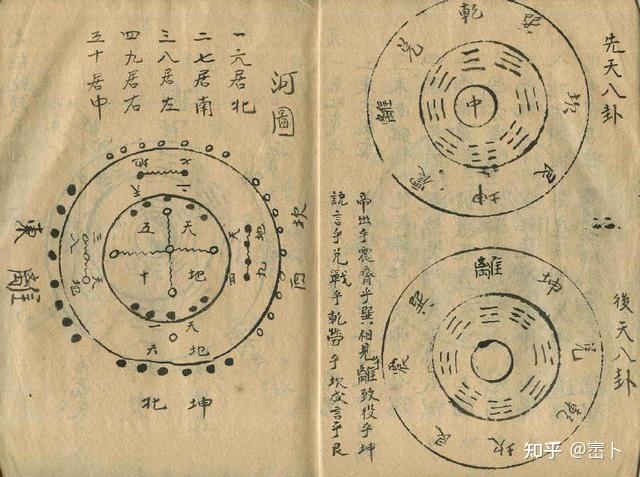 先天八卦
乾
巽
坎
艮
坤
震
離
兌
中
後天八卦
離
坤
兌
乾
坎
艮
震
巽
帝出乎震齊乎巽相見乎離致役乎坤
說言乎兌戰乎乾勞乎坎成言乎艮
河圖
一六居北
二七居南
三八居左
四九居右
五十居中
七
地
二
天
坎
西
地
九
天
四
東
離
三
八
天
地
五
天
十
地
天
一
地
六
坤
北
知乎 @窋卜